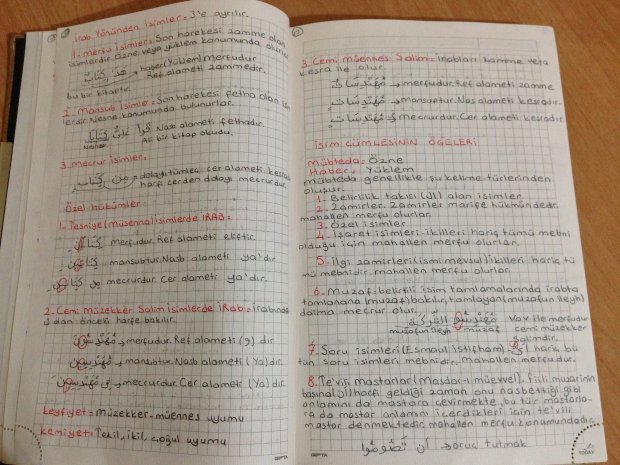 İrab Yönünden İsimler = 3'e ayrılır.
1- merfu İsimler = Son harekesi zamme olan
isimlerdir. Özne, veya yüklem konumunda olurlar.
هَذَا كِتَابٌ → haber (Yüklem) merfudur
bu bir kitaptır. Ref alameti zammedir.
2- Mansub isimler = Son harekesi fetha olan isim
lerdir. Nesne konumunda bulunurlar.
قَرَأَ عَلِيٌّ كِتَابًا Nasb alameti fethadır.
Ali bir kitap okudu.
3- mecrur isimler =
مِن كِتَابٍ → dolayı cer alameti kesradır
harfi cerden dolayı mecrurdur.
Özel hükümler =
1- Tesniye (müsenna) isimlerde İRAB =
merfudur. Ref alameti eliftir.
mansubtur. Nasb alameti ya'dır
mecrurdur. Cer alameti ya'dır.
2- Cemi müzekker Salim isimlerde İRab = irabında
dan önceki harfe bakılır.
مُهَنْدِسُونَ → merfudur. Ref alameti (و) dır
مُهَنْدِسِينَ → mansubtur. Nasb alameti (Ya) dır.
مُهَنْدِسِينَ → mecrurdur. Cer alameti (Ya) dır.
keyfiyet = müzekker - müennes uyumu
kemiyet = Tekil, ikil, çoğul uyumu
GIPTA
3. Cemi müennes Salim = irabları zamme veya
kesra ile olur.
مُهَنْدِسَاتٌ → merfudur. Ref alameti zamme
مُهَنْدِسَاتٍ → mansuptur. Nas alameti kesradır.
مُهَنْدِسَاتٍ → mecrurdur. Cer alameti kesradır.
İSİM CÜMLESİNİN ÖĞELERİ
Mübteda = Özne
Haber = Yüklem
mübteda genellikle şu kelime türlerinden
oluşur.
1. Belirlilik takısı (ال) alan isimler
2. Zamirler. Zamirler marife hükmündedir.
mahallen merfu olurlar.
3. Özel isimler
4. İşaret isimleri - ikilleri hariç tümü mebni
olduğu için mahallen merfu olurlar.
5. İlgi zamirleri (ismi mevsul) ikilleri hariç tü
mü mebnidir. mahallen merfu olurlar.
6. Muzaf = belirtili isim tamlamalarında irabta
tamlanana (muzaf) bakılır, tamlayan (muzafun ileyh)
daima mecrur olur.
مُهَنْدِسُو الشَّرِكَةِ Vav ile merfudur
muzafun ileyh muzaf cemi müzekker
salimdir.
7. Soru isimleri (Esmaul istifham) = أَيُّ hariç bü
tün soru isimleri mebnidir. Mahallen merfudur.
8. Te'vili mastarlar (Masdar-ı müevvel). fiili muzarinin
başına (أن) harfi geldiği zaman onu nasbettiği gibi
anlamını da mastara çevirmekte, bu tür mastarla-
ra da mastar anlamını içerdikleri için te'vili
mastar denmektedir, mahallen merfu konumundadır.
أَنْ تَصُومُوا → oruç tutmak
GIPTA
TODAY